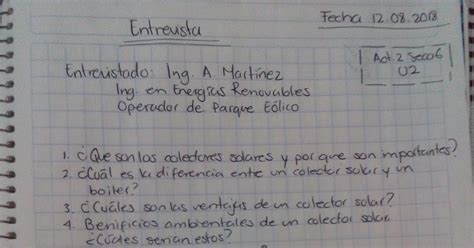 Fecha 12.08.2018
Entrevista
Act 2 Seco6
U2
Entrevistado: Ing. A. Martínez
Ing. en Energías Renovables
Operador de Parque Eólico
1. ¿Que son los colectores solares y por que son importantes?
2. ¿Cuál es la diferencia ente un colector solar y un
boiler?
3. ¿Cuáles son las ventajas de un colector solar?
4. Benificios ambientales de un colector solar
¿Cúales serian estos?